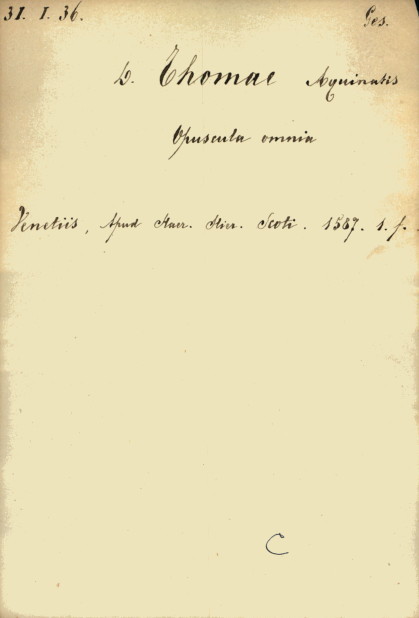 31. I. 36. Ges.
D. Thomae Aquinatis
Opuscula omnia
Venetiis, Apud Haer. Hier. Scoti. 1587. 1. f.
C